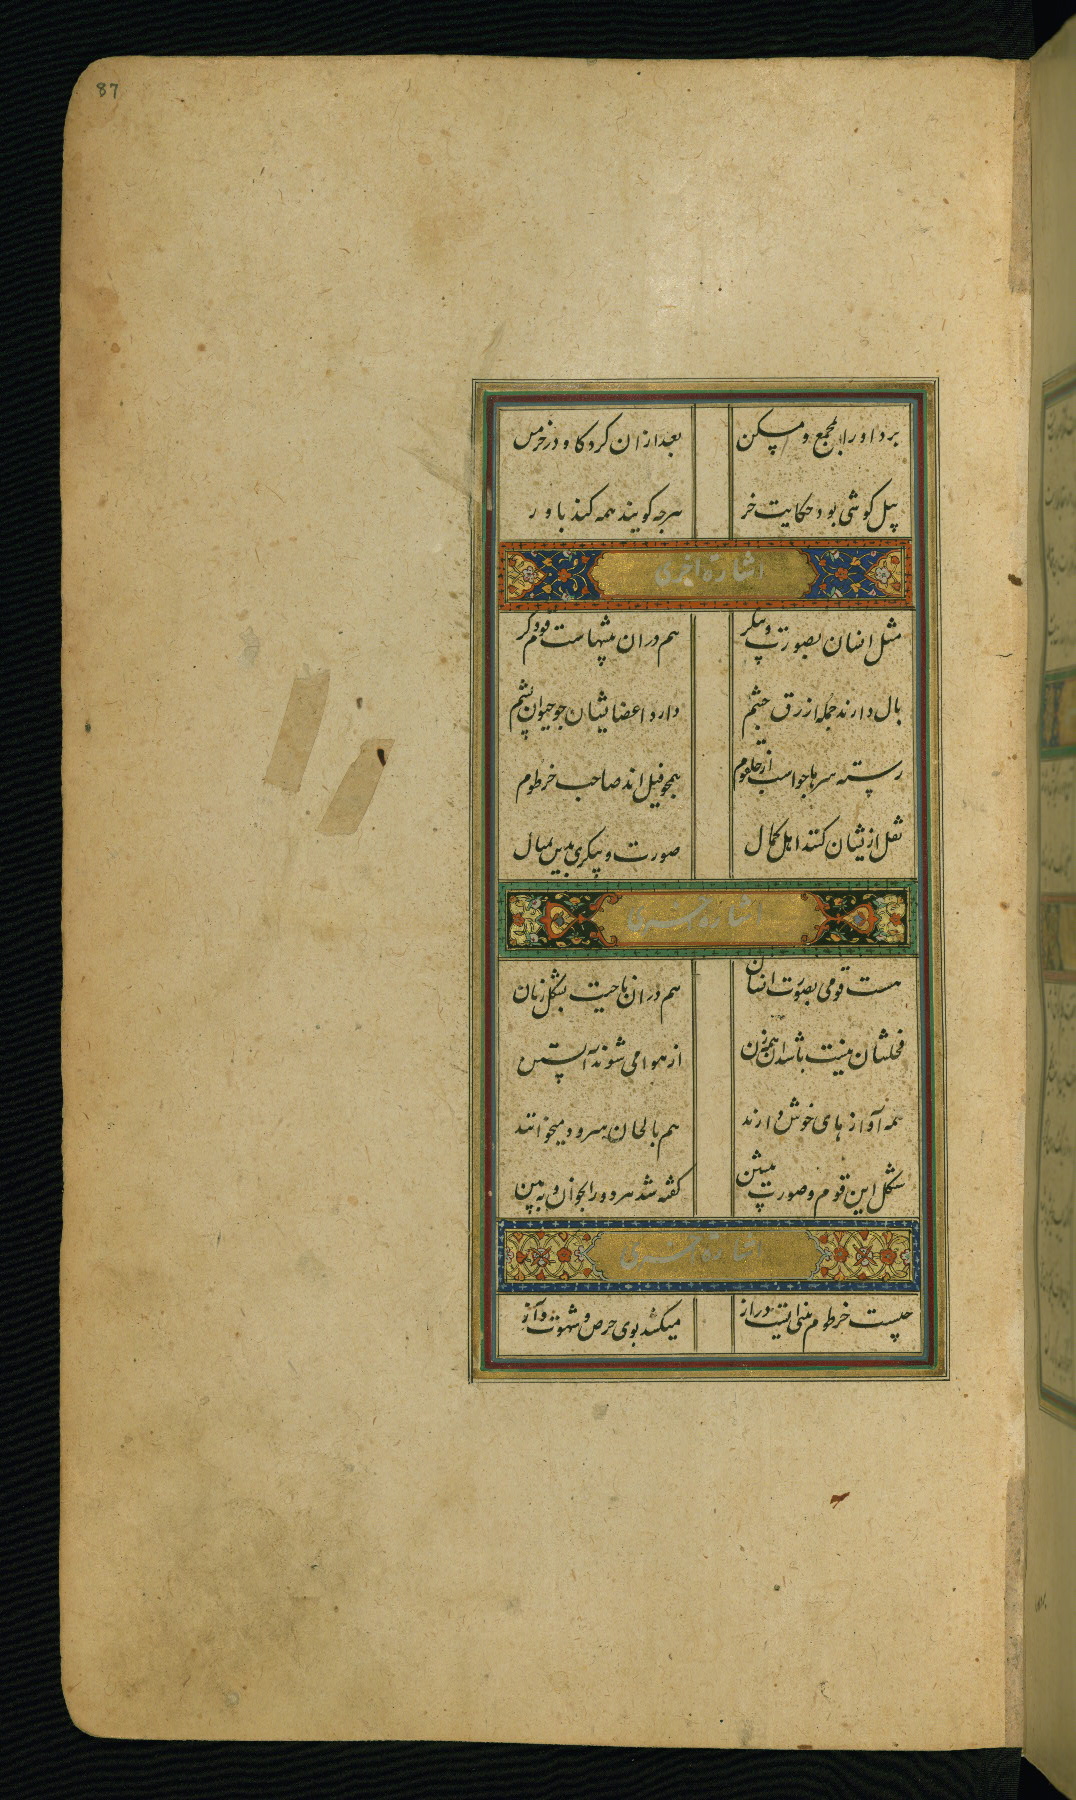 87
برد او را بمجمع و مسکن بعد ازان کرد کاو در خرمن
پیل کوشی بود حکایت خر هرچه کویند همه کند باور
اشارة اخری
مثل انسان بصورت و پیکر هم دران بیشهاست قوم دکر
بال دارند جمله ازرق چشم دارد اعضایشان چو حیوان پشم
رسته سرها چو اسب از حلقوم همچو فیل اند صاحب خرطوم
نقل ازیشان کنند اهل کمال صورت و پیکری بدین تمثال
اشارة اخری
هست قومی بصورت انسان هم دران ناحیت بشکل زنان
فحلشان نیست باشدان همه زن از هوا می شوند آبستن
همه آواز های خوش دارند هم بالحان سرود میخوانند
شکل این قوم و صورت پیشین کفته شد هر دو را بخوان و به بین
اشارة اخری
چیست خرطوم بینی است دراز میکشد بوی حرص و شهوت و آز